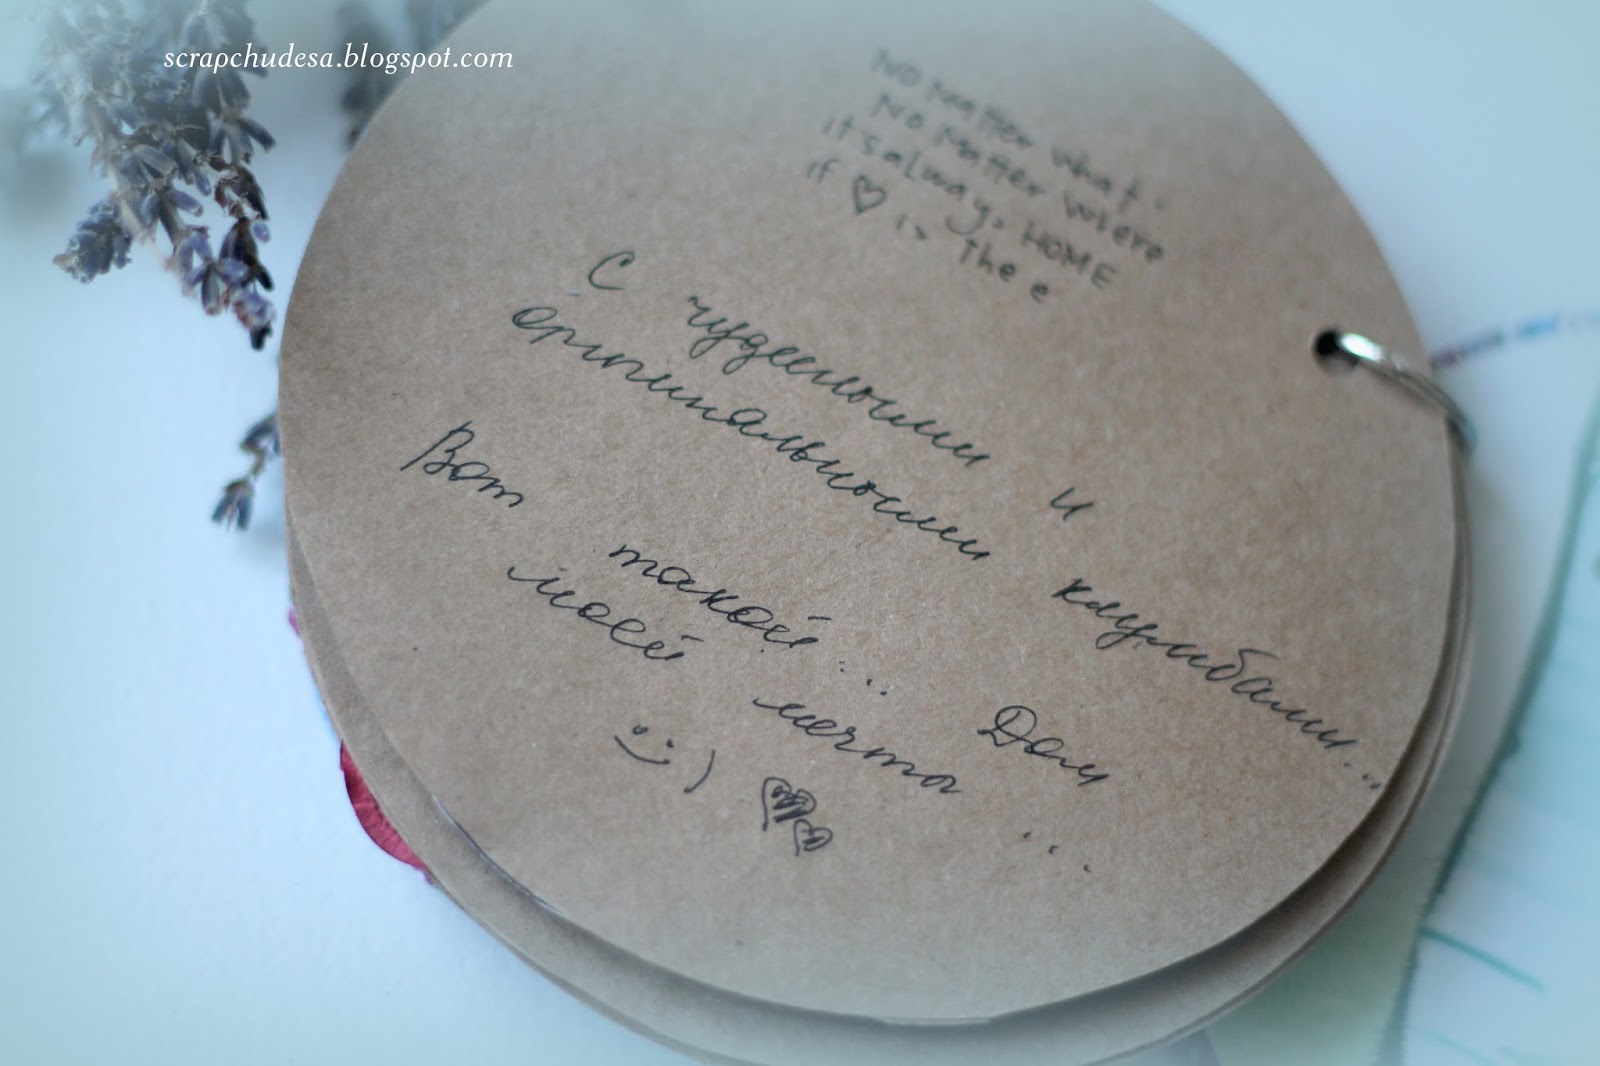 scrapchudesa.blogspot.com
No Matter what.
No Matter where
it's always HOME
if ♡ is The e
С чудесными и
оригинальными клумбами...
Вот такой... Дом
моей мечты...
:)